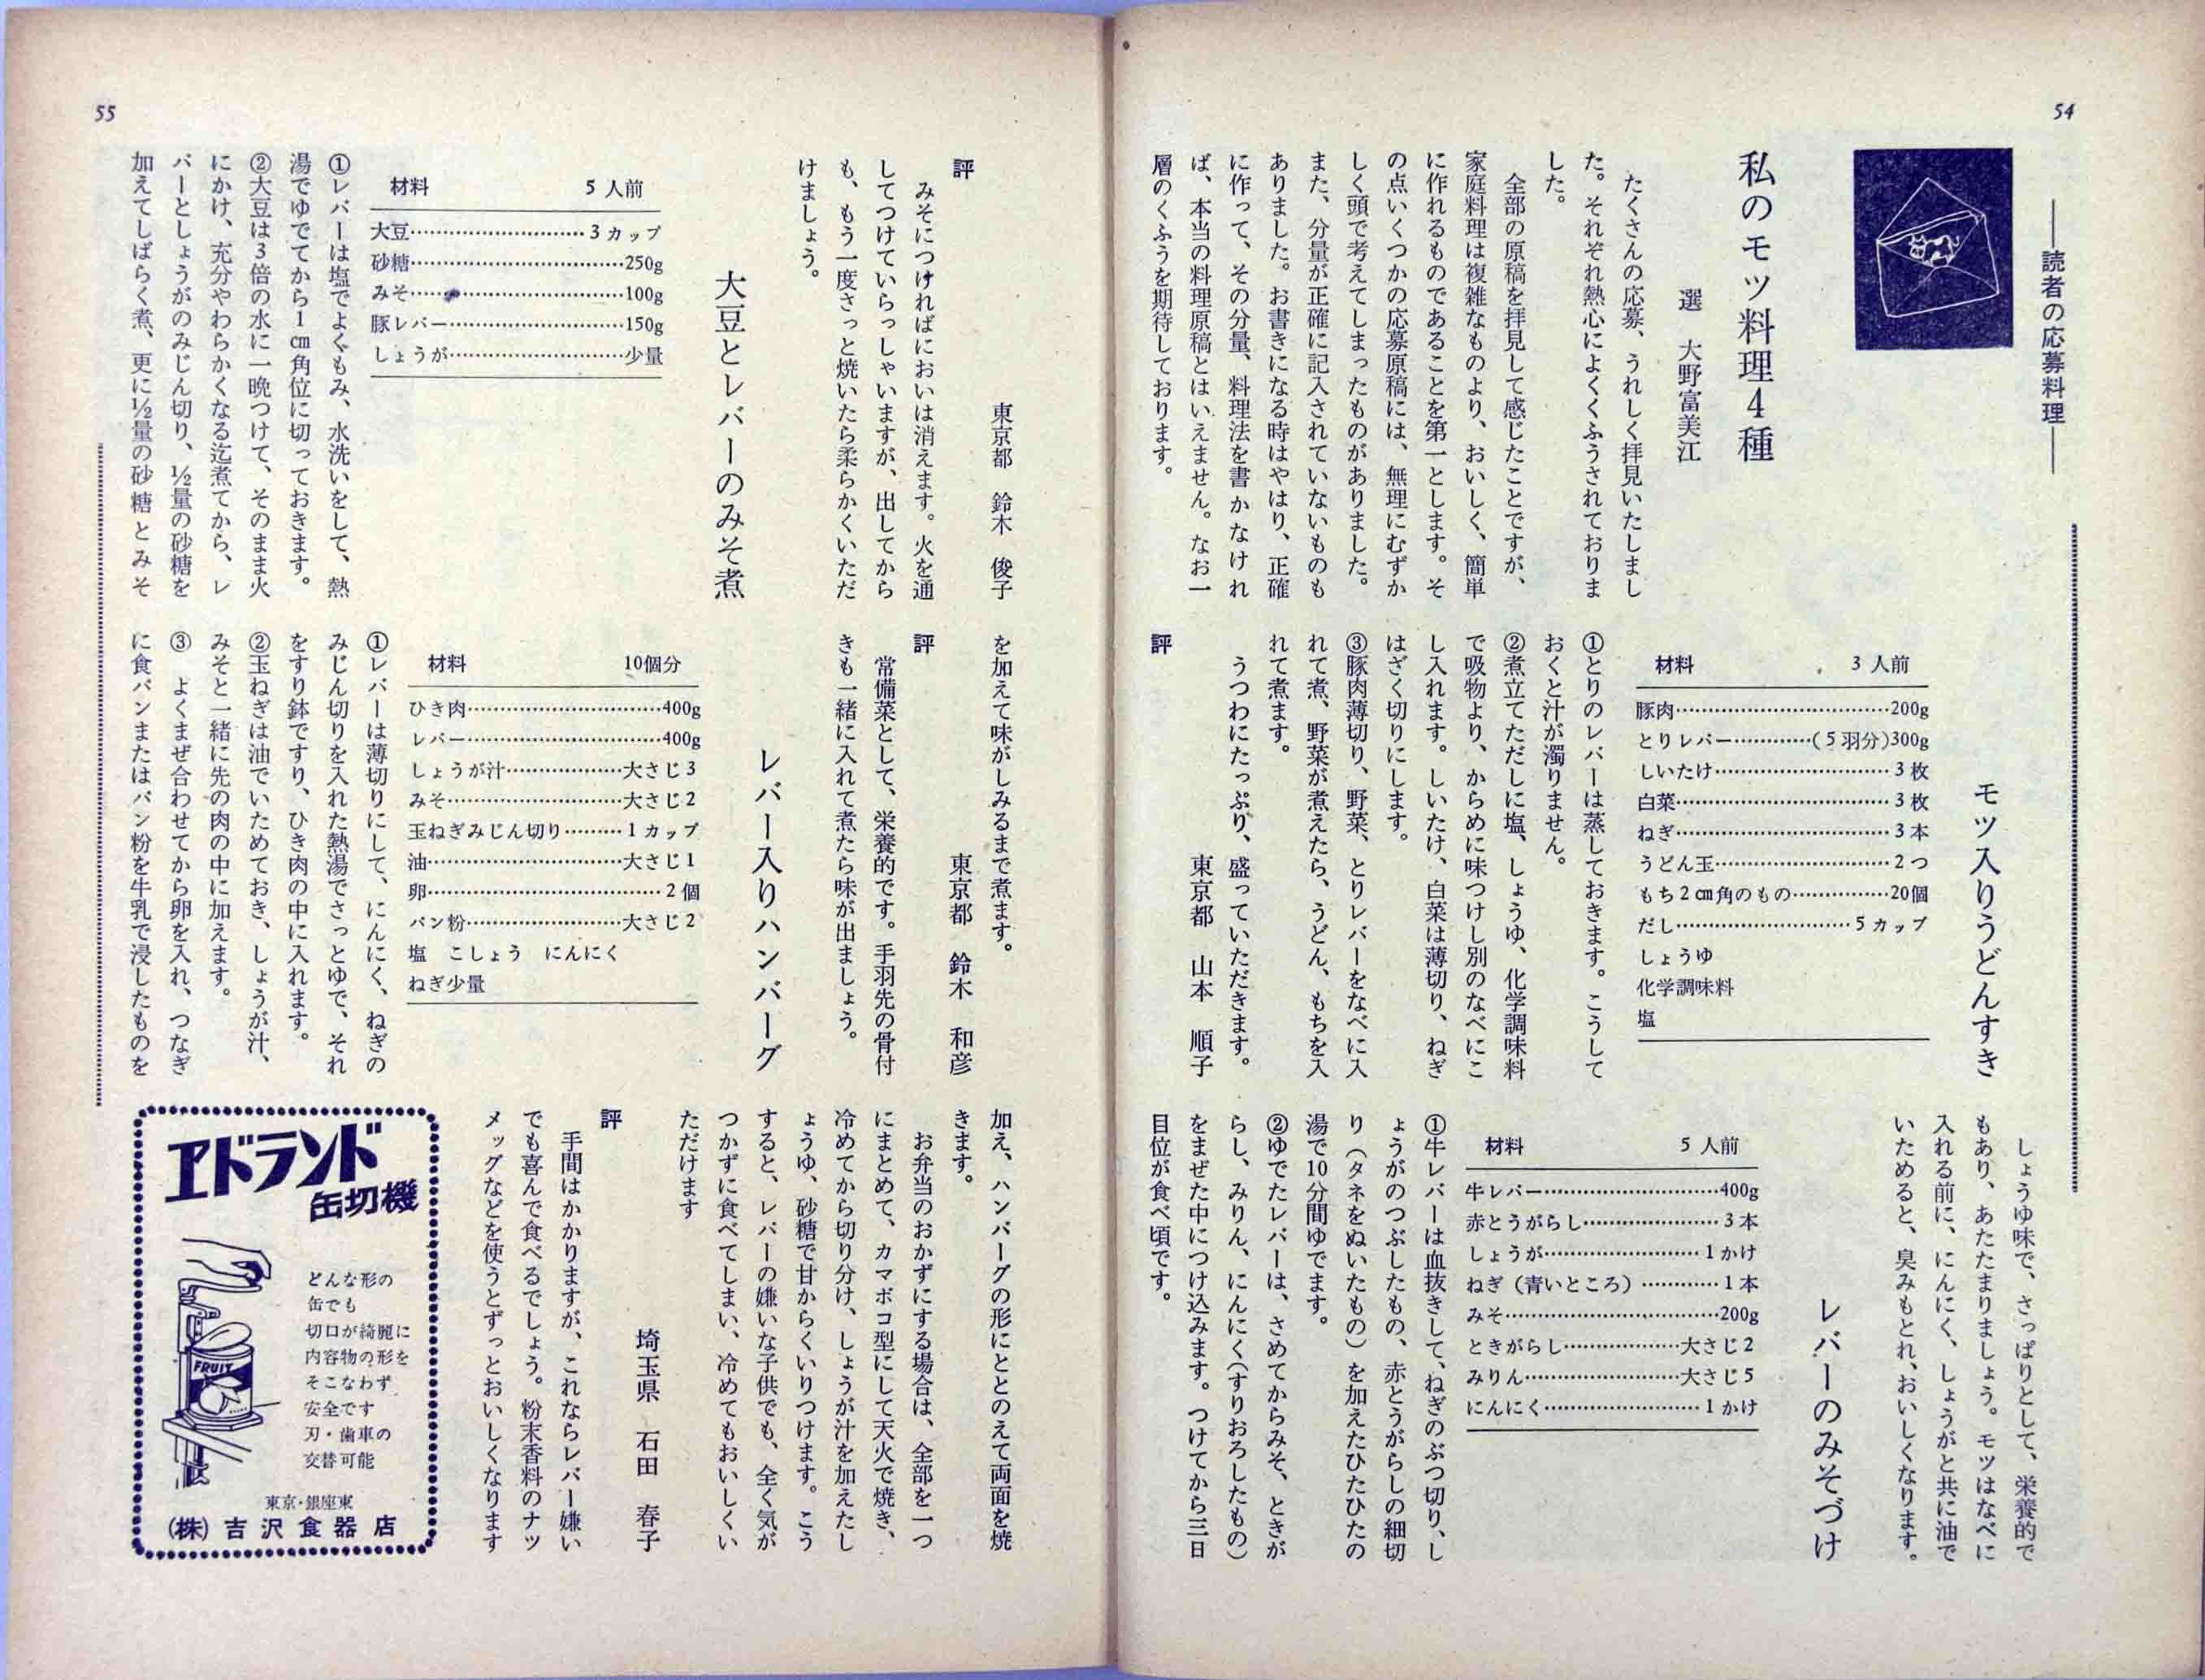 54
――読者の応募料理――
私のモツ料理4種
選　大野富美江
たくさんの応募、うれしく拝見いたしまし
た。それぞれ熱心によくくふうされておりま
した。
全部の原稿を拝見して感じたことですが、
家庭料理は複雑なものより、おいしく、簡単
に作れるものであることを第一とします。そ
の点いくつかの応募原稿には、無理にむずか
しく頭で考えてしまったものがありました。
また、分量が正確に記入されていないものも
ありました。お書きになる時はやはり、正確
に作って、その分量、料理法を書かなけれ
ば、本当の料理原稿とはいえません。なお一
層のくふうを期待しております。
モツ入りうどんすき
材料　3人前
豚肉…………200g
とりレバー…………(5羽分)300g
しいたけ…………3枚
白菜…………3枚
ねぎ…………3本
うどん玉…………2つ
もち2㎝角のもの…………20個
だし…………5カップ
しょうゆ
化学調味料
塩
①とりのレバーは蒸しておきます。こうして
おくと汁が濁りません。
②煮立てただしに塩、しょうゆ、化学調味料
で吸物より、からめに味つけし別のなべにこ
し入れます。しいたけ、白菜は薄切り、ねぎ
はざく切りにします。
③豚肉薄切り、野菜、とりレバーをなべに入
れて煮、野菜が煮えたら、うどん、もちを入
れて煮ます。
うつわにたっぷり、盛っていただきます。
東京都　山本　順子
評
しょうゆ味で、さっぱりとして、栄養的で
もあり、あたたまりましょう。モツはなべに
入れる前に、にんにく、しょうがと共に油で
いためると、臭みもとれ、おいしくなります。
レバーのみそづけ
材料　5人前
牛レバー…………400g
赤とうがらし…………3本
しょうが…………1かけ
ねぎ（青いところ）…………1本
みそ…………200g
ときがらし…………大さじ2
みりん…………大さじ5
にんにく…………1かけ
①牛レバーは血抜きして、ねぎのぶつ切り、し
ょうがのつぶしたもの、赤とうがらしの細切
り（タネをぬいたもの）を加えたひたひたの
湯で10分間ゆでます。
②ゆでたレバーは、さめてからみそ、ときが
らし、みりん、にんにく（すりおろしたもの）
をまぜた中につけ込みます。つけてから三日
目位が食べ頃です。
55
東京都　鈴木　俊子
評
みそにつければにおいは消えます。火を通
してつけていらっしゃいますが、出してから
も、もう一度さっと焼いたら柔らかくいただ
けましょう。
大豆とレバーのみそ煮
材料　5人前
大豆…………3カップ
砂糖…………250g
みそ…………100g
豚レバー…………150g
しょうが…………少量
①レバーは塩でよくもみ、水洗いをして、熱
湯でゆでてから1㎝角位に切っておきます。
②大豆は3倍の水に一晩つけて、そのまま火
にかけ、充分やわらかくなる迄煮てから、レ
バーとしょうがのみじん切り、½量の砂糖を
加えてしばらく煮、更に½量の砂糖とみそ
を加えて味がしみるまで煮ます。
東京都　鈴木　和彦
評
常備菜として、栄養的です。手羽先の骨付
きも一緒に入れて煮たら味が出ましょう。
レバー入りハンバーグ
材料　10個分
ひき肉…………400g
レバー…………400g
しょうが汁…………大さじ3
みそ…………大さじ2
玉ねぎみじん切り…………1カップ
油…………大さじ1
卵…………2個
パン粉…………大さじ2
塩　こしょう　にんにく
ねぎ少量
①レバーは薄切りにして、にんにく、ねぎの
みじん切りを入れた熱湯でさっとゆで、それ
をすり鉢ですり、ひき肉の中に入れます。
②玉ねぎは油でいためておき、しょうが汁、
みそと一緒に先の肉の中に加えます。
③　よくまぜ合わせてから卵を入れ、つなぎ
に食パンまたはパン粉を牛乳で浸したものを
加え、ハンバーグの形にととのえて両面を焼
きます。
お弁当のおかずにする場合は、全部を一つ
にまとめて、カマボコ型にして天火で焼き、
冷めてから切り分け、しょうが汁を加えたし
ょうゆ、砂糖で甘からくいりつけます。こう
すると、レバーの嫌いな子供でも、全く気が
つかずに食べてしまい、冷めてもおいしくい
ただけます
埼玉県　石田　春子
評
手間はかかりますが、これならレバー嫌い
でも喜んで食べるでしょう。粉末香料のナッ
メッグなどを使うとずっとおいしくなります
エドランド
缶切機
FRUIT
どんな形の
缶でも
切口が綺麗に
内容物の形を
そこなわず
安全です
刃・歯車の
交替可能
東京・銀座東
(株)吉沢食器店